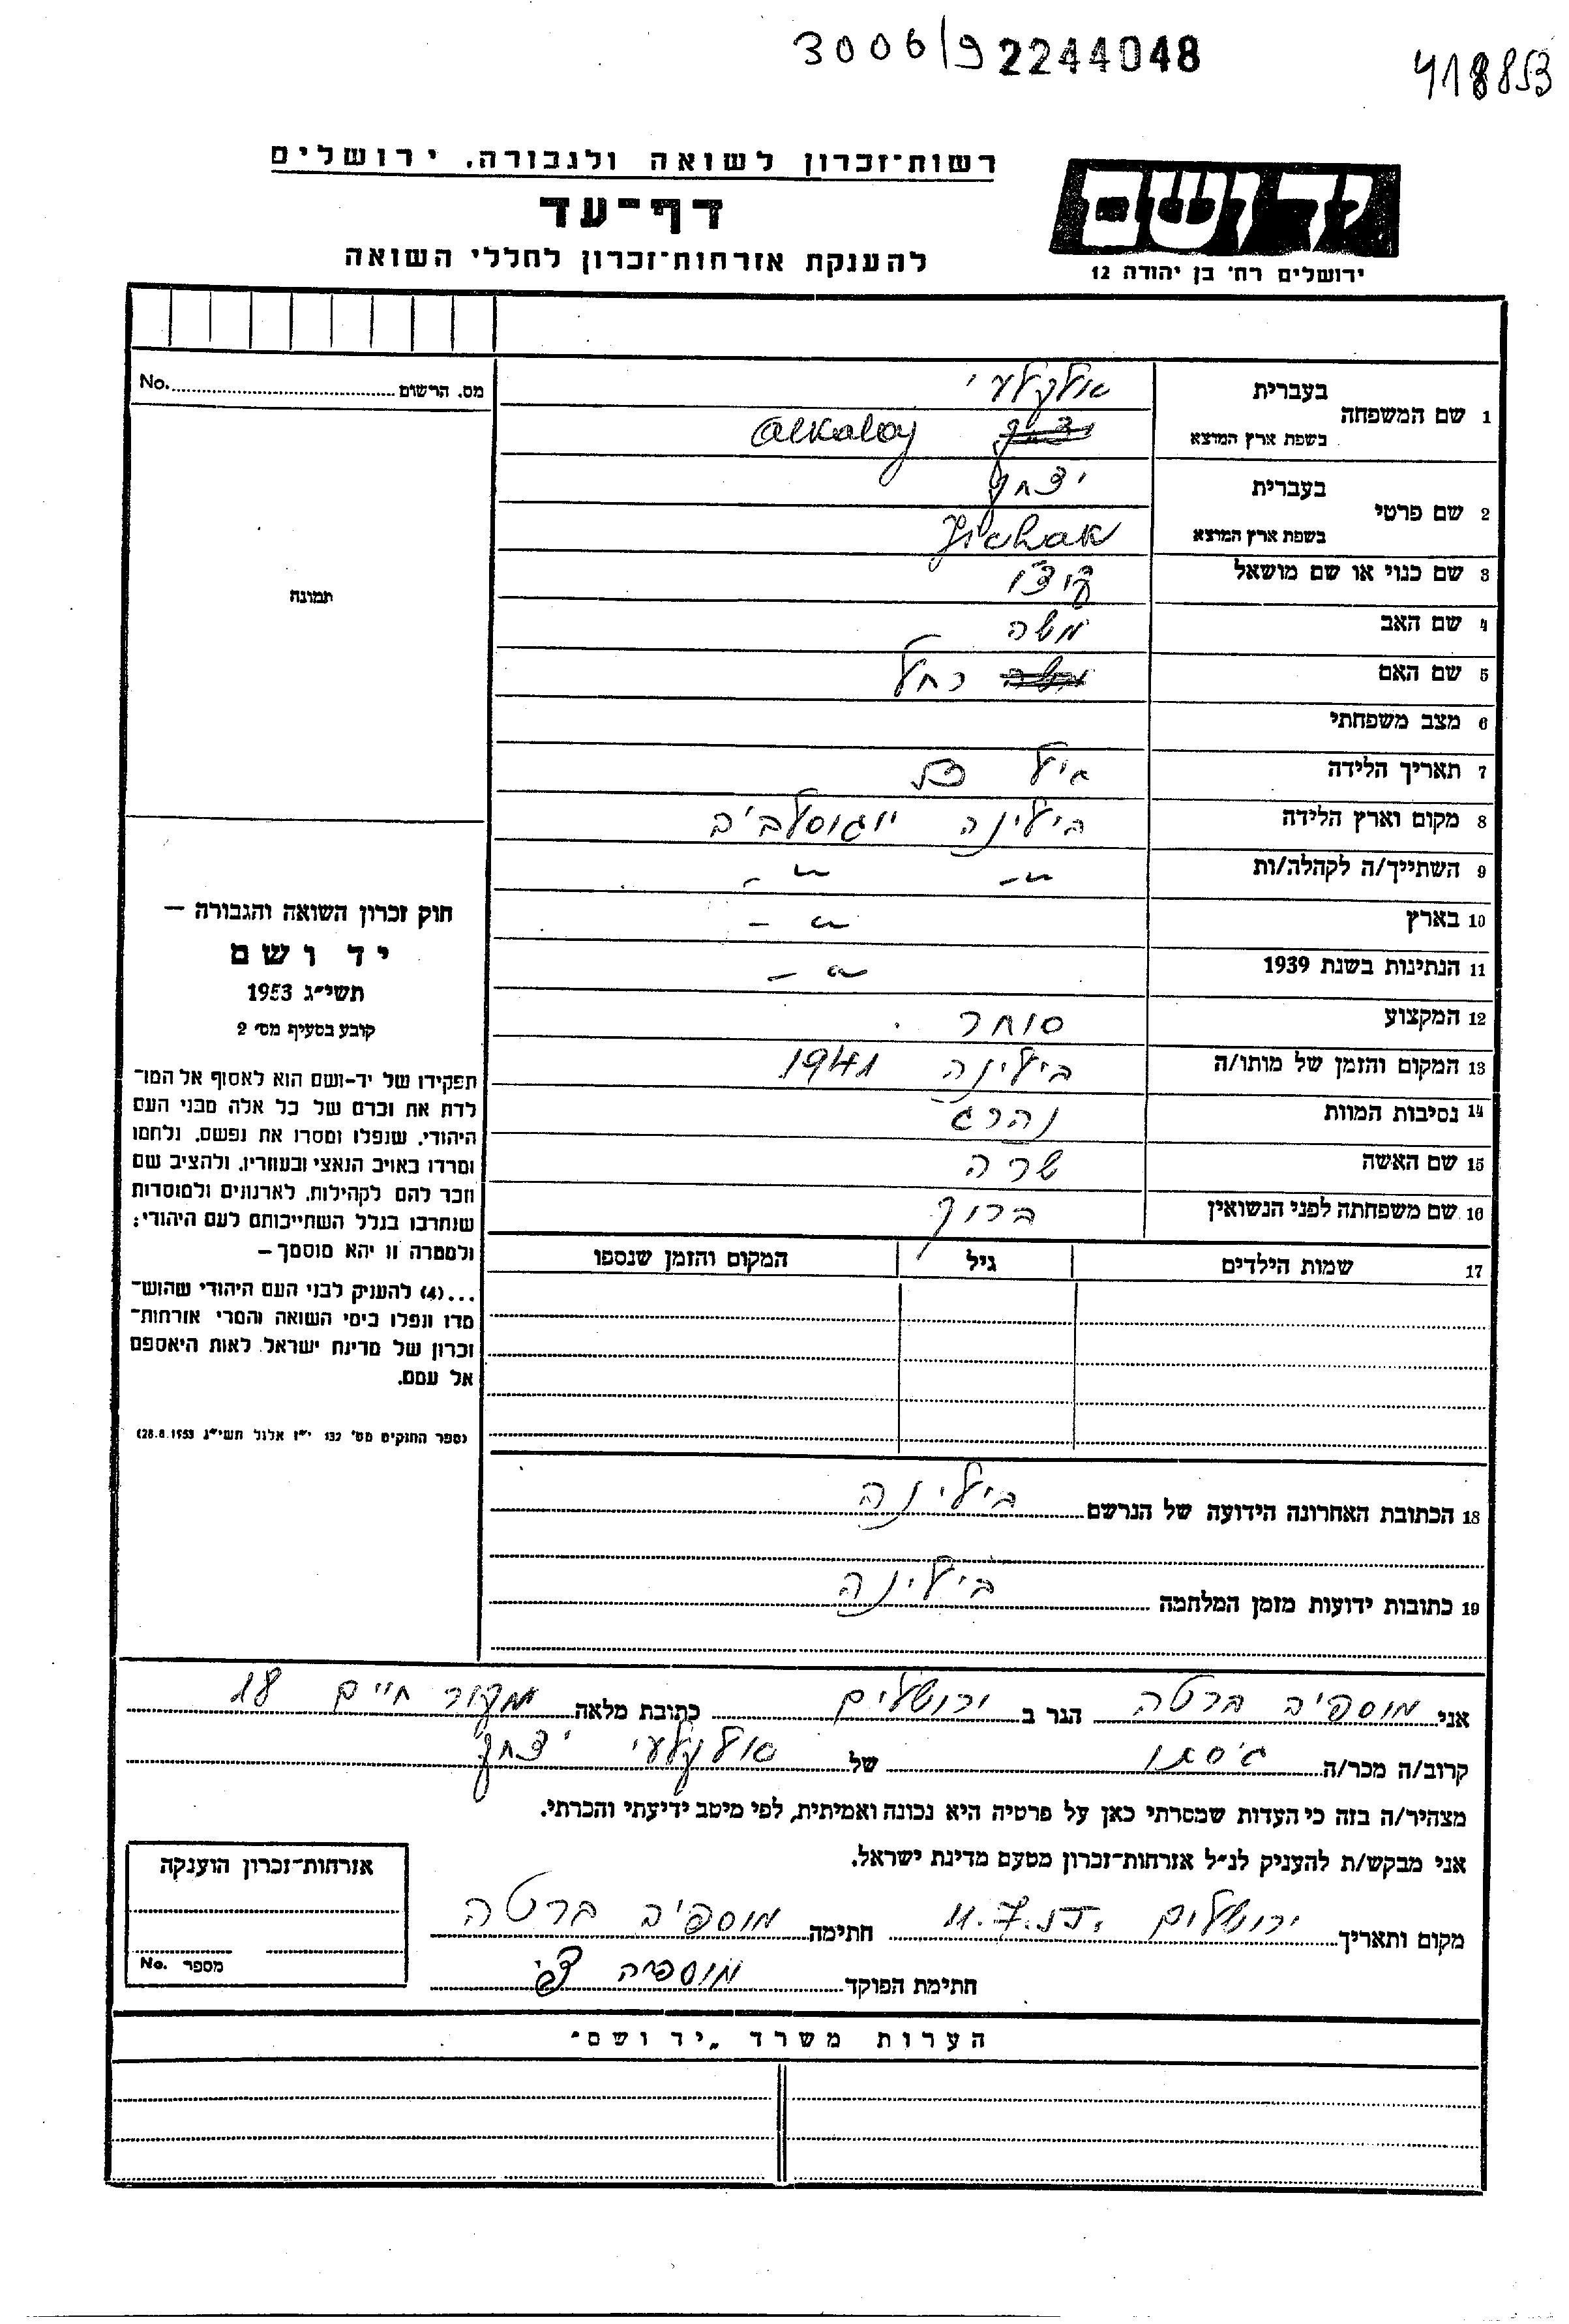 3006/9 2244048
418853
רשות־זכרון לשואה ולגבורה. ירושלים
דף־עד
להענקת אזרחות־זכרון לחללי השואה
יד ושם
ירושלים רח' בן יהודה 12
מס. הרשום No.
תמונה
1 שם המשפחה בעברית אלקלעי
בשפת ארץ המוצא Alkalay
2 שם פרטי בעברית יצחק
בשפת ארץ המוצא Jichak
3 שם כנוי או שם מושאל
4 שם האב משה
5 שם האם רחל
6 מצב משפחתי
7 תאריך הלידה גיל
8 מקום וארץ הלידה ביילינה יוגוסלביב
9 השתייך/ה לקהלה/ות
10 בארץ
11 הנתינות בשנת 1939
12 המקצוע סוחר
13 המקום והזמן של מותו/ה ביילינה 1941
14 נסיבות המוות נהרג
15 שם האשה שרה
16 שם משפחתה לפני הנשואין ברוך
17 שמות הילדים גיל המקום והזמן שנספו
חוק זכרון השואה והגבורה —
יד ושם
תשי״ג 1953
קובע בסעיף מס' 2
תפקידו של יד-ושם הוא לאסוף אל המו־
לדת את זכרם של כל אלה מבני העם
היהודי, שנפלו ומסרו את נפשם, נלחמו
ומרדו באויב הנאצי ובעוזריו, ולהציב שם
וזכר להם לקהילות, לארגונים ולמוסדות
שנחרבו בגלל השתייכותם לעם היהודי;
ולמטרה זו יהא מוסמך —
...(4) להעניק לבני העם היהודי שהוש־
מדו ונפלו בימי השואה והמרי אזרחות־
זכרון של מדינת ישראל לאות היאספם
אל עמם.
(ספר החוקים מס' 132 י״ז אלול תשי״ג 28.8.1953)
18 הכתובת האחרונה הידועה של הנרשם ביילינה
19 כתובות ידועות מזמן המלחמה ביילינה
אני מוספיב ברטה הגר ב ירושלים כתובת מלאה מקור חיים 18
קרוב/ה מכר/ה גיסתו של אלקלעי יצחק
מצהיר/ה בזה כי העדות שמסרתי כאן על פרטיה היא נכונה ואמיתית, לפי מיטב ידיעתי והכרתי.
אני מבקש/ת להעניק לנ״ל אזרחות־זכרון מטעם מדינת ישראל.
מקום ותאריך ירושלים חתימה מוספיב ברטה
חתימת הפוקד
אזרחות־זכרון הוענקה
מספר No.
הערות משרד „יד ושם״